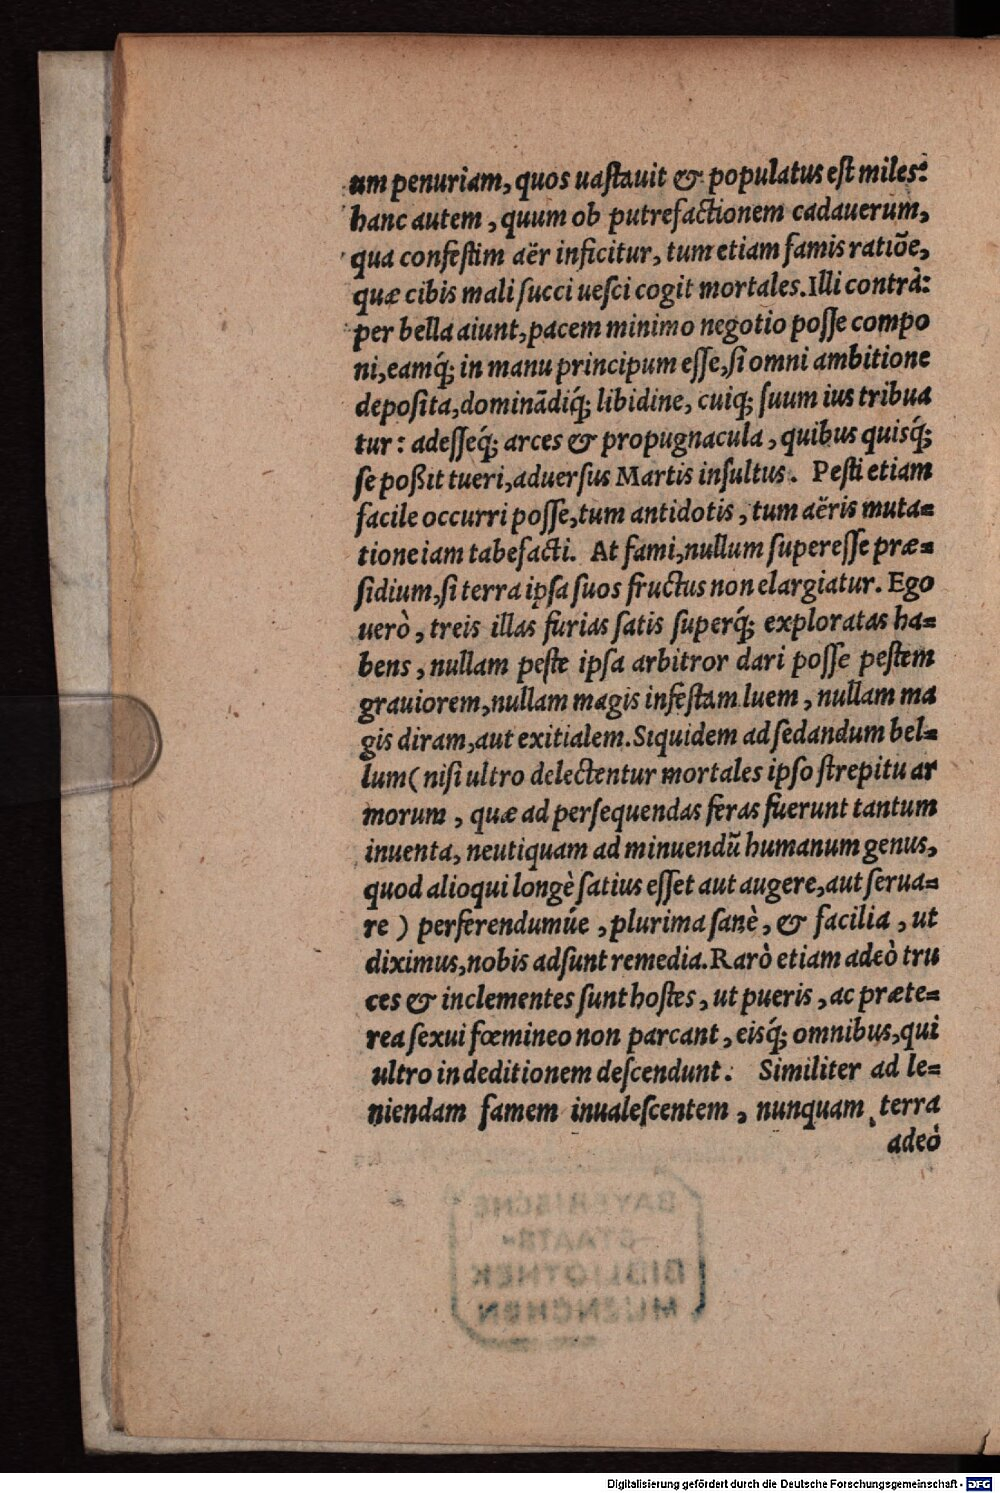 um penuriam, quos uaſtauit & populatus eſt miles:
hanc autem, quum ob putrefactionem cadauerum,
qua confeſtim aër inficitur, tum etiam famis ratiõe,
quæ cibis mali ſucci ueſci cogit mortales. Illi contrà:
per bella aiunt, pacem minimo negotio poſſe compo
ni, eamq́; in manu principum eſſe, ſi omni ambitione
depoſita, dominãdiq́; libidine, cuiq; ſuum ius tribua
tur: adeſſeq́; arces & propugnacula, quibus quisq́;
ſe poßit tueri, aduerſus Martis inſultus. Peſti etiam
facile occurri poſſe, tum antidotis, tum aëris muta=
tione iam tabefacti. At fami, nullum ſupereſſe præ=
ſidium, ſi terra ipſa ſuos fructus non elargiatur. Ego
uerò, treis illas furias ſatis ſuperq́; exploratas ha=
bens, nullam peſte ipſa arbitror dari poſſe peſtem
grauiorem, nullam magis infeſtam luem, nullam ma
gis diram, aut exitialem. Siquidem ad ſedandum bel=
lum (niſi ultro delectentur mortales ipſo ſtrepitu ar
morum, quæ ad perſequendas feras fuerunt tantum
inuenta, neutiquam ad minuendũ humanum genus,
quod alioqui longè ſatius eſſet aut augere, aut ſerua=
re) perferendumúe, plurima ſanè, & facilia, ut
diximus, nobis adſunt remedia. Rarò etiam adeò tru
ces & inclementes ſunt hoſtes, ut pueris, ac præte=
rea ſexui fœmineo non parcant, eisq́; omnibus, qui
ultro in deditionem deſcendunt. Similiter ad le=
niendam famem inualeſcentem, nunquam terra
adeò
BAYERISCHE
STAATS-
BIBLIOTHEK
MUENCHEN
Digitalisierung gefördert durch die Deutsche Forschungsgemeinschaft - DFG